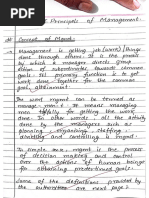 Principles of Management.
Concept of
Management is getting job (work) / things
done through others. It is the process
by which a manager directs group
action of subordinates towards common
goals. Its primary function is to get
work done together for the common
goal attainment.
The word mgmt can be termed as
manage - men - t. It means manag-
men tactfully for getting the things
done. In other words all the activity
done by the managers such as
planning, organising, staffing
directing, controlling is mgmt.
In simple sense, mgmt is the process
of decision making and control
over the action of human beings
for attaining predetermined goals.
Some of the definitions provided by
the authorities are next page